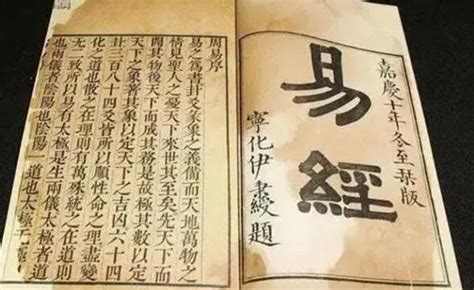 嘉慶十年冬至栞版
易經
寧化伊秉綬題
周易序
易之為書卦爻彖象之義備而天地萬物之
情見聖人之憂天下來世其至矣先天下而
開其物後天下而成其務是故極其數以定
天下之象著其象以定天下之吉凶六十四
卦三百八十四爻皆所以順性命之理盡變
化之道也散之在理則有萬殊統之在道則
無二致所以易有太極是生兩儀太極者道
也兩儀者陰陽也陰陽一道也太極无極